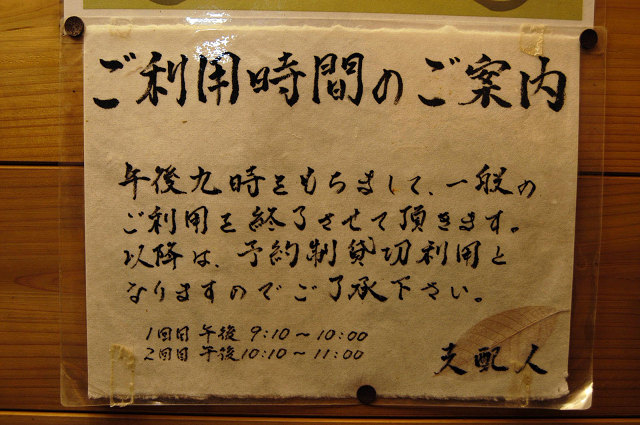 ご利用時間のご案内
午後九時をもちまして、一般の
ご利用を終了させて頂きます。
以降は、予約制貸切利用と
なりますのでご了承下さい。
1回目 午後 9:10～10:00
2回目 午後10:10～11:00
支配人